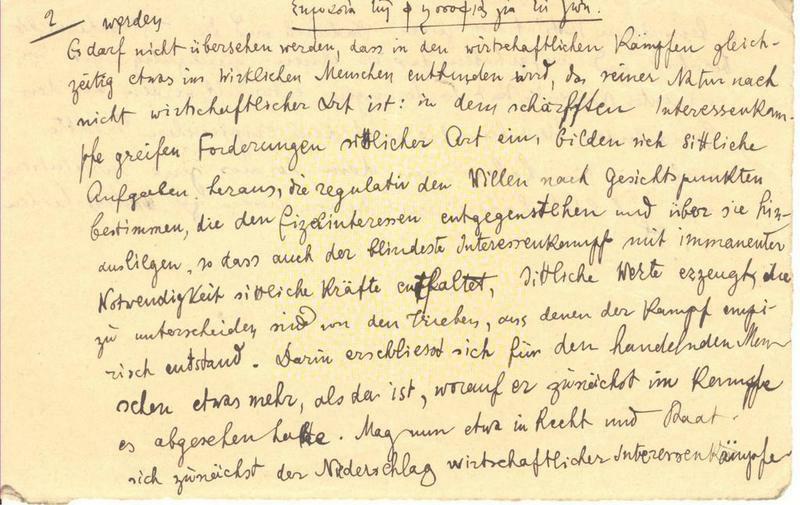 2 werden
Es darf nicht übersehen werden, dass in den wirtschaftlichen Kämpfen gleich-
zeitig etwas im wirklichen Menschen entbunden wird, das seiner Natur nach
nicht wirtschaftlicher Art ist: in dem schärfften Interessenkam-
pfe greifen Forderungen sittlicher Art ein, bilden sich sittliche
Aufgaben heraus, die regulativ den Willen nach Gesichtspunkten
bestimmen, die den Eizelinteressen entgegenstehen und über sie hin-
ausliegen, so dass auch der blindeste Interessenkampf mit immanenter
Notwendigkeit sittliche Kräfte entfaltet, sittliche Werte erzeugt, die
zu unterscheiden sind von den Trieben, aus denen der Kampf empi-
risch entstand. Darin erschliesst sich für den handelnden Men-
schen etwas mehr, als das ist, worauf er zunächst im Kampfe
es abgesehen hatte. Mag nun etwa in Recht und Staat
sich zunächst der Niederschlag wirtschaftlicher Interessenkämpfe